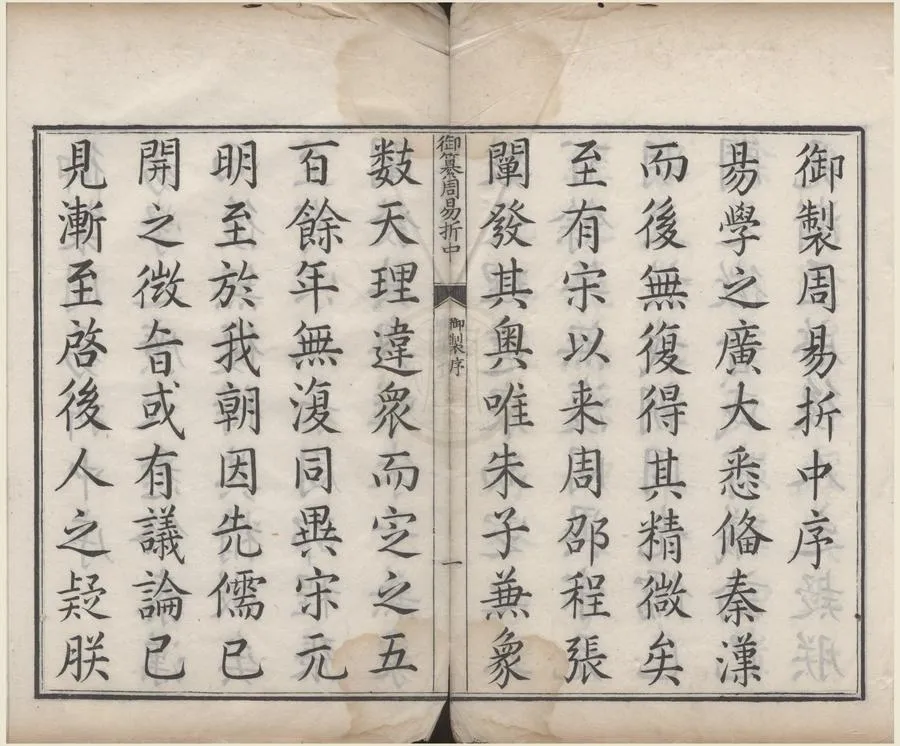 御製周易折中序
易學之廣大悉俻秦漢
而後無復得其精微矣
至有宋以来周邵程張
闡發其奥唯朱子兼象
御纂周易折中
御製序
一
數天理違眾而定之五
百餘年無復同異宋元
明至於我朝因先儒已
開之微㫖或有議論已
見漸至啓後人之疑朕